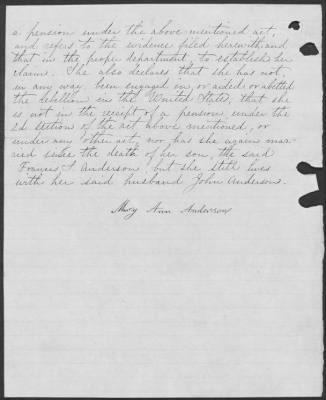 a pension under the above mentioned act,
and refers to the evidence filed herewith and
that in the proper department, to establish her
claims. She also declares that she has not,
in any way, been engaged in, or aided or abetted
the rebellion in the United States, that she
is not in the receipt of a pension under the
2d section of the act above mentioned, or
under any other act, nor has she again mar-
ried since the death of her son, the said
Francis S. Anderson, but she still lives
with her said husband John Anderson.
Mary Ann Anderson